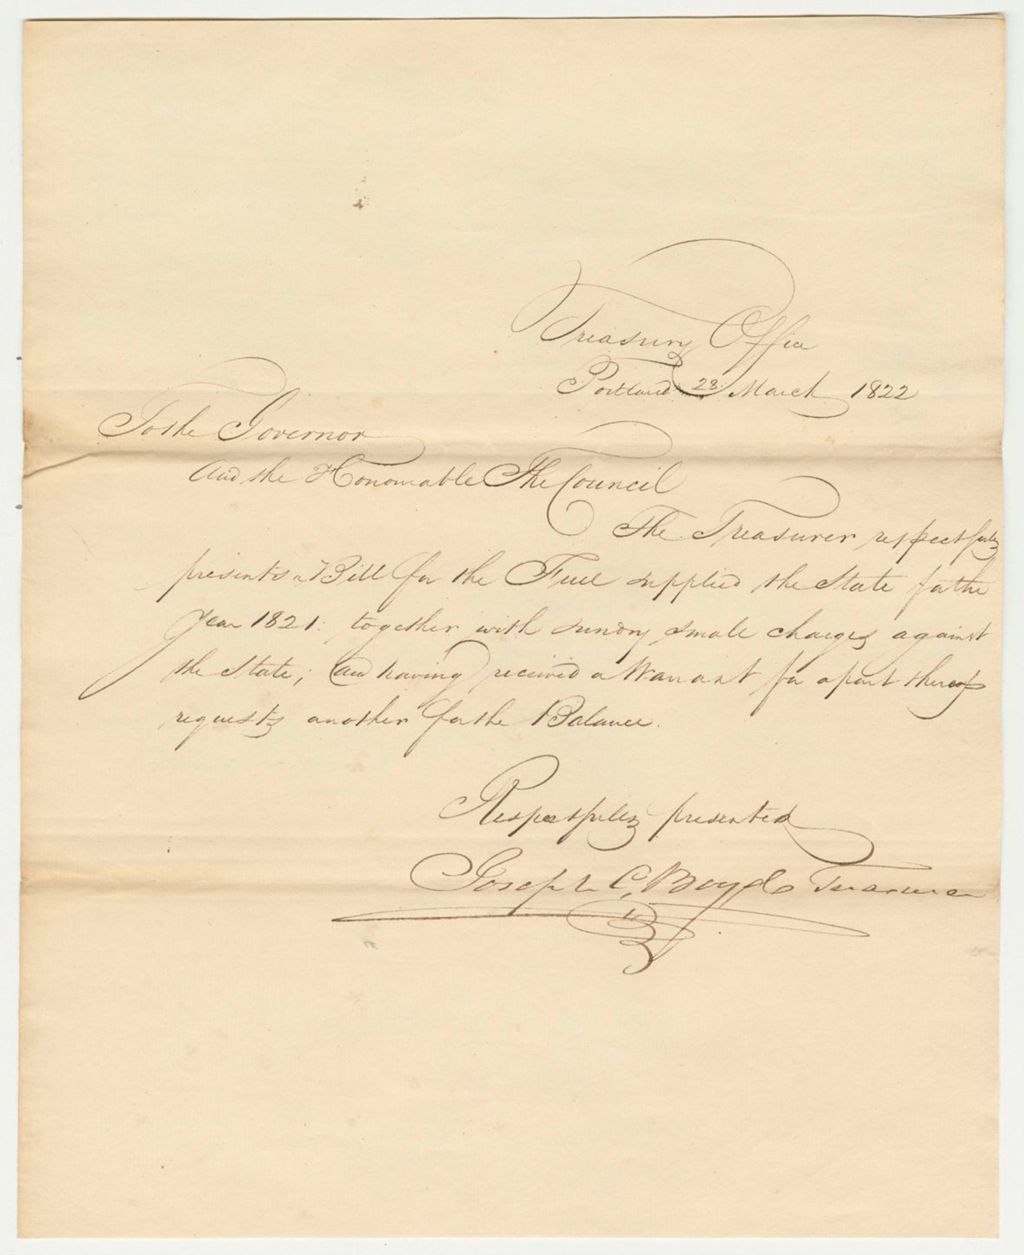 Treasury Office
Portland 28 March 1822
To the Governor
And the Honourable The Council
The Treasurer respectfully
presents a Bill for the Fuel supplied the State for the
Year 1821: together with sundry small charges against
the State; and having received a Warrant for a part thereof
requests another for the Balance.
Respectfully presented
Joseph C. Boyd Treasurer